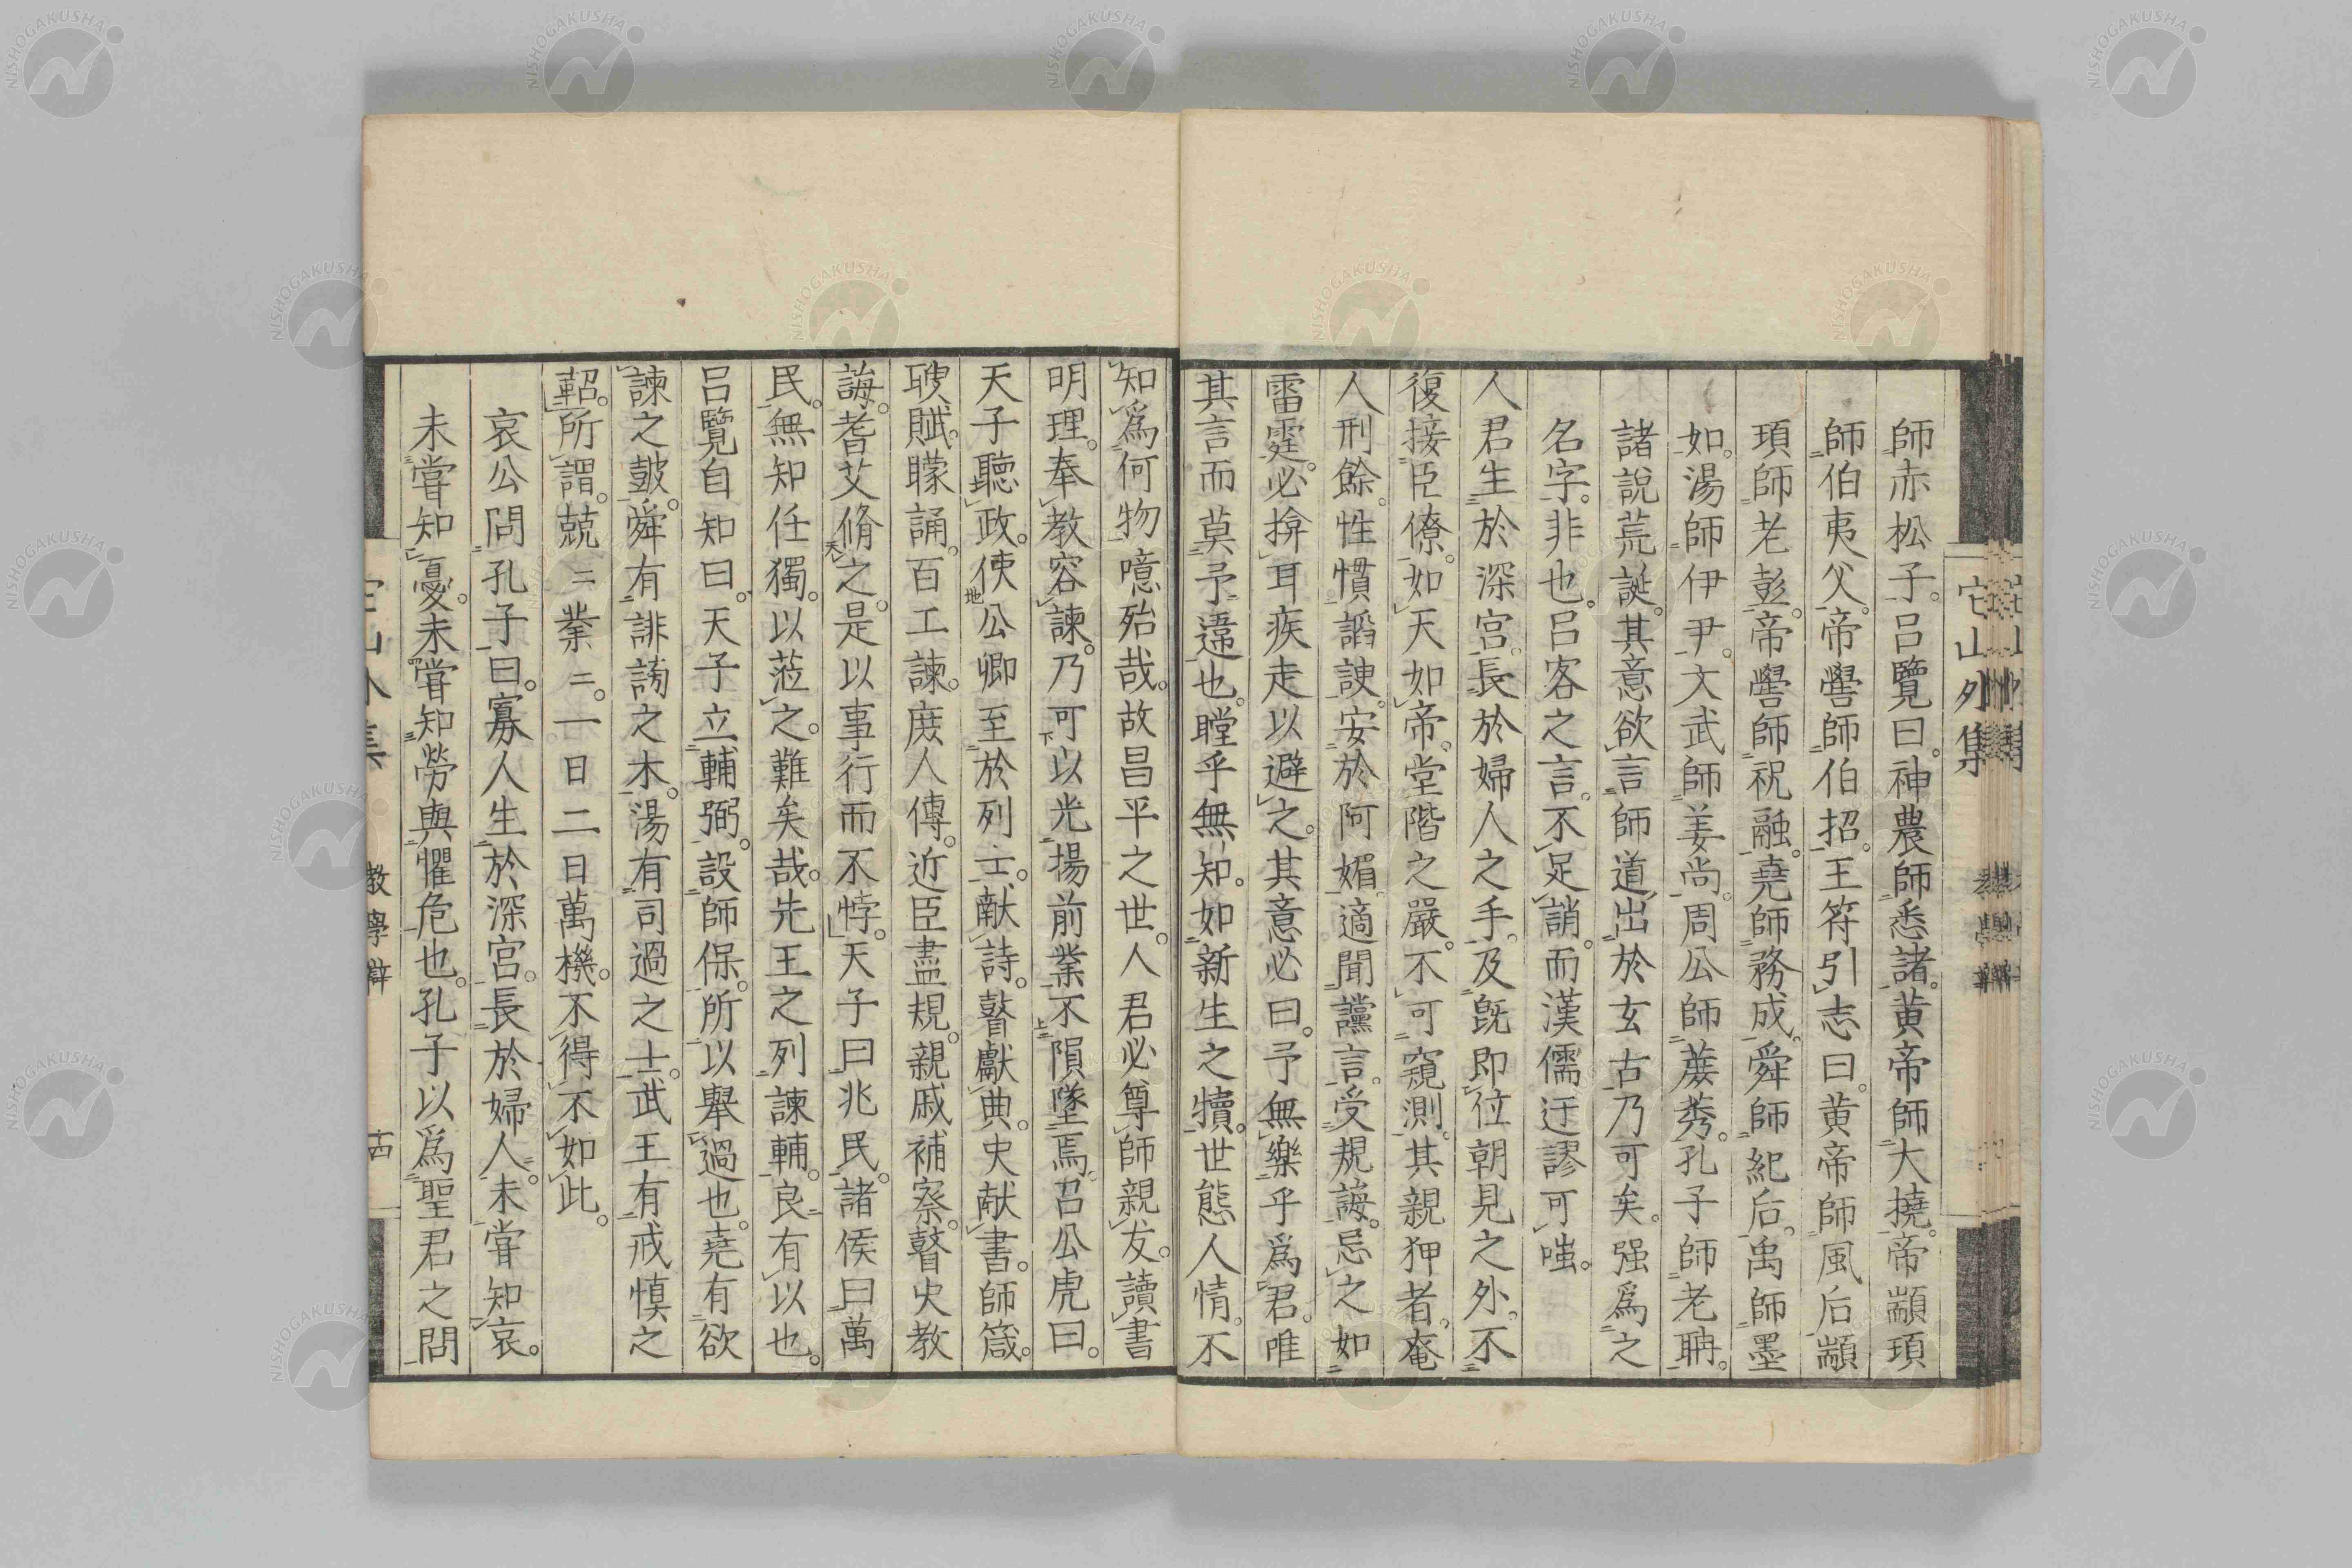 它山外集
師赤松子。呂覽曰。神農師悉諸。黄帝師大撓。帝顓頊
師伯夷父。帝嚳師伯招。王符引志曰。黄帝師風后。顓
頊師老彭。帝嚳師祝融。堯師務成。舜師紀后。禹師墨
如。湯師伊尹。文武師姜尚。周公師蔗莠。孔子師老聃。
諸說荒誕。其意欲言師道出於玄古乃可矣。强爲之
名字。非也。呂客之言。不足誚。而漢儒迂謬可嗤。
人君生於深宮。長於婦人之手。及既即位朝見之外。不
復接臣僚。如天如帝。堂階之嚴。不可窺測。其親狎者。奄
人刑餘。性慣謟諛。安於阿媚。適聞讜言。受規誨。忌之如
雷霆。必揜耳疾走以避之。其意必曰。予無樂乎爲君。唯
其言而莫予違也。瞠乎無知。如新生之犢。世態人情。不
知爲何物。噫殆哉。故昌平之世。人君必尊師親友。讀書
明理。奉教容諫。乃可以光揚前業。不隕墜焉。召公虎曰。
天子聽政。使公卿至於列士。献詩。瞽獻典。史献書。師箴。
瞍賦。矇誦。百工諫。庶人傳。近臣盡規。親戚補察。瞽史教
誨。耆艾脩之。是以事行而不悖。天子曰兆民。諸侯曰萬
民。無知任獨。以蒞之。難矣哉。先王之列諫輔。良有以也。
呂覽自知曰。天子立輔弼。設師保。所以舉過也。堯有欲
諫之鼓。舜有誹謗之木。湯有司過之士。武王有戒慎之
鞀。所謂。兢二業二。一日二日萬機。不得不如此。
哀公問孔子曰。寡人生於深宮。長於婦人。未甞知哀。
未甞知憂。未甞知勞與懼危也。孔子以爲聖君之問
教學辯
十四